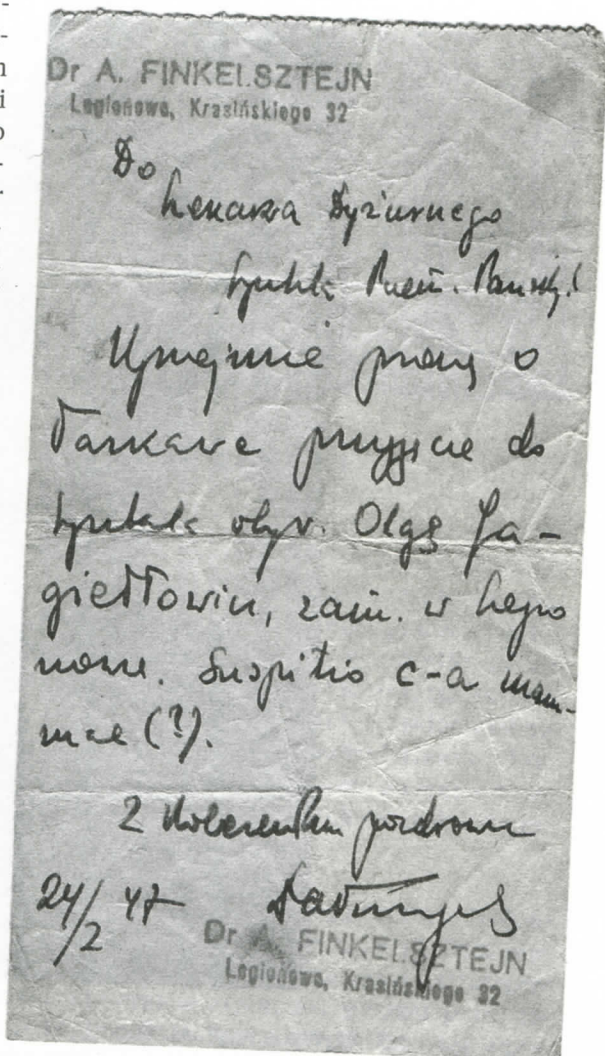 Dr A. FINKELSZTEJN
Legionowo, Krasińskiego 32
Do
Lekarza Dyżurnego
Szpitala Przem. Pańsk.
Uprzejmie proszę o
łaskawe przyjęcie do
szpitala obyw. Olgę Ja-
giełłowicz, zam. w Legio
nowie. Suspitio c-a mam-
mae (?).
Z koleżeńskim pozdrowie
24/2 47
Dr A. FINKELSZTEJN
Legionowo, Krasińskiego 32